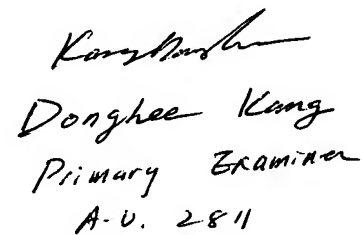 Donghee Kang
Primary Examiner
A.U. 2811